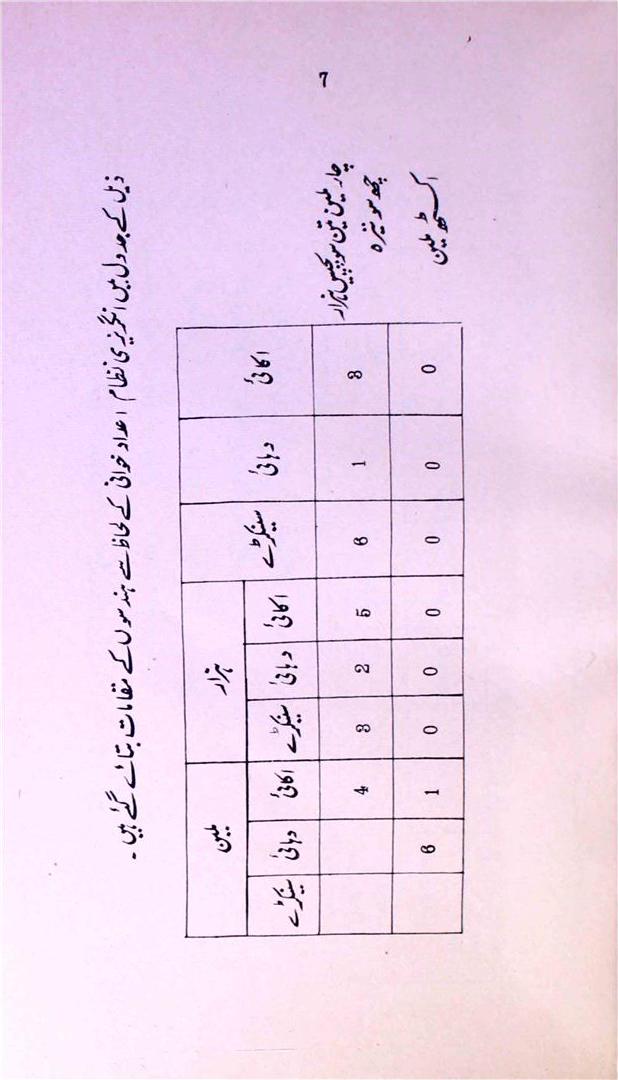 7
ذیل کے جدول میں انگریزی نظام اعداد خوانی کے لحاظ سے ہندسوں کے مقامات بتائے گئے ہیں۔
ملین ہزار سینکڑے دہائی اکائی
سینکڑے دہائی اکائی سینکڑے دہائی اکائی
4 3 2 5 6 1 3
چار ملین تین سو پچیس ہزار
چھ سو تیرہ
6 1 0 0 0 0 0 0
اکسٹھ ملین